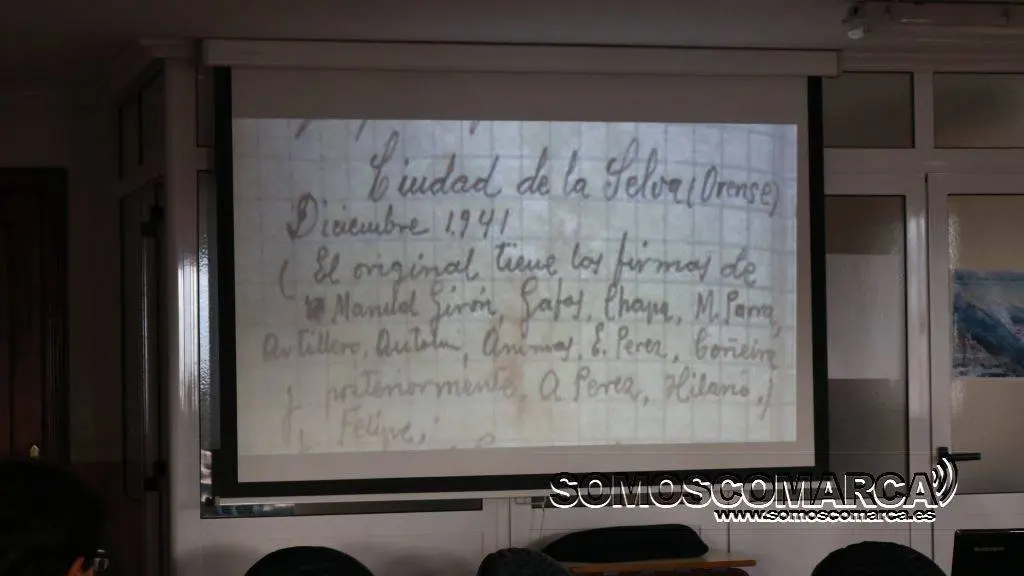 Ciudad de la Selva (Orense)
Diciembre 1.941
( El original tiene las firmas de
Manuel Girón, Gafas, Chapa, M. Parra,
Artillero, Animas, E. Perez,
y posteriormente, A Perez, Hilario,)
y Felipe,
SOMOSCOMARCA
www.somoscomarca.es
lenovo